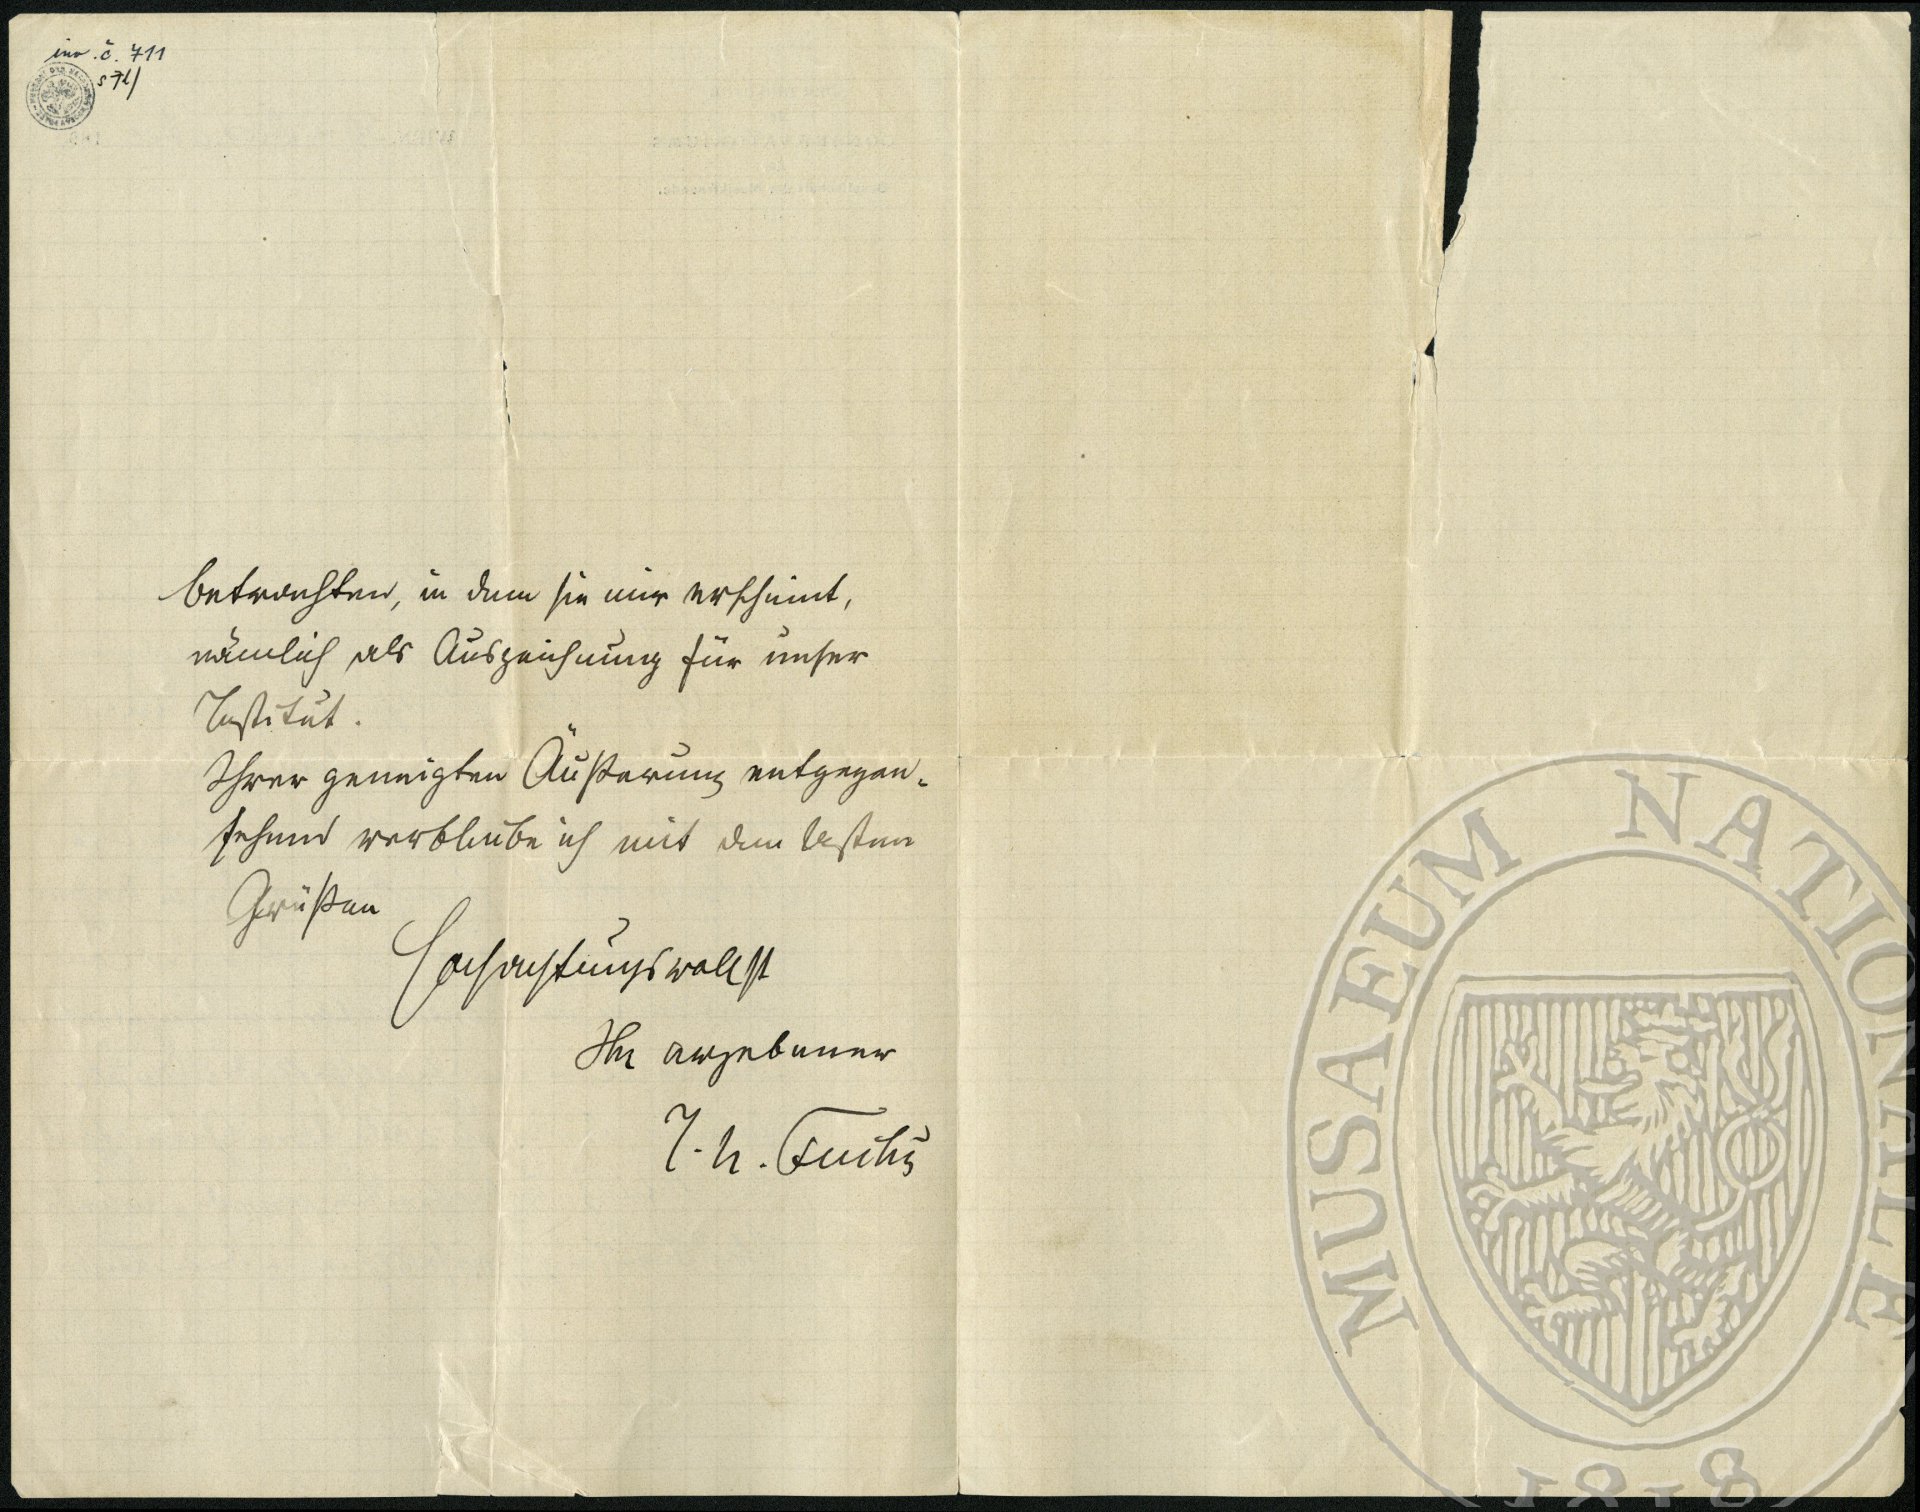 inv. č. 711
betrachten, in dem sie mir erscheint,
nämlich als Auszeichnung für unser
Institut.
Ihrer geneigten Äußerung entgegen-
sehend verbleibe ich mit den besten
Grüßen
Hochachtungsvollst
Ihr ergebener
J. N. Fuchs
MUSAEUM NATIONALE
1818